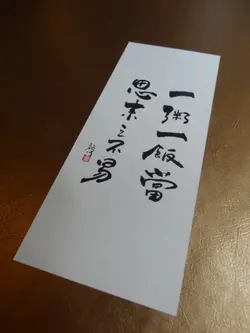 一粥一飯當
思来之不易